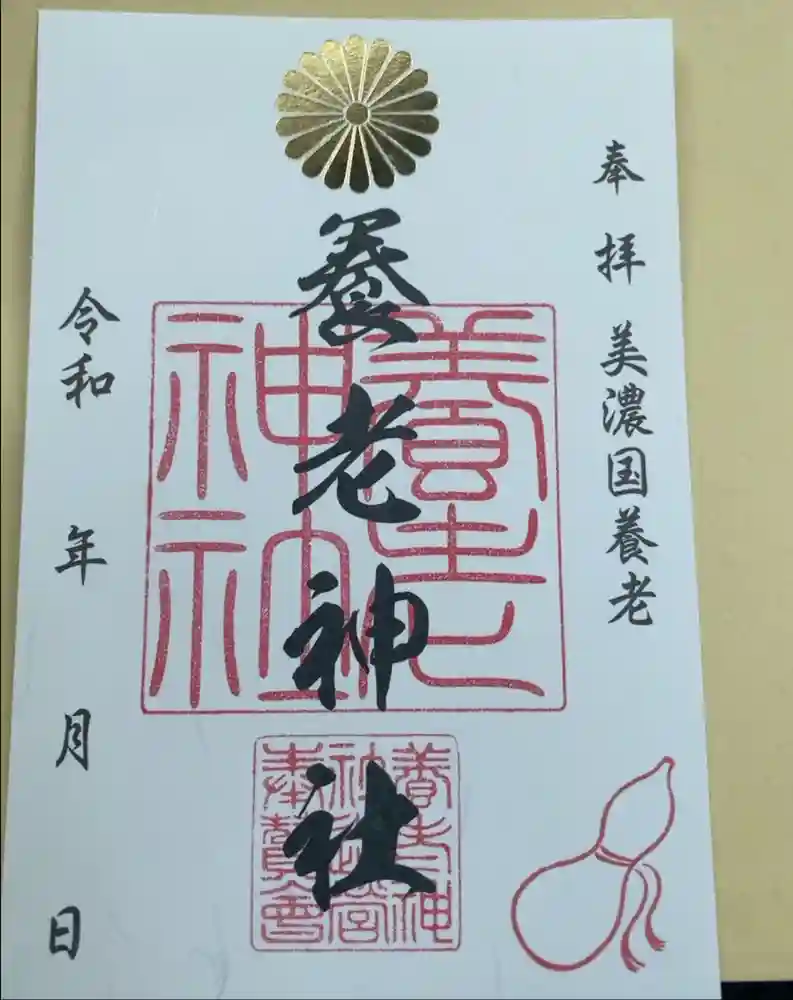 奉拝 美濃国養老
養老神社
令和 年 月 日
養老
神社
養老神
奉賛會